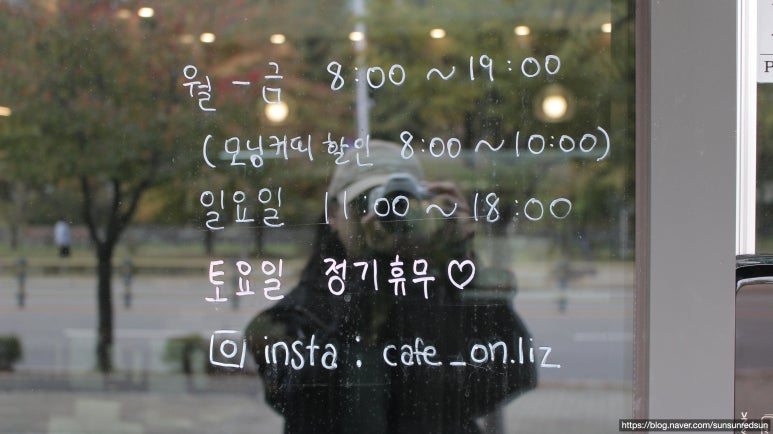 월 - 금 8:00 ~ 19:00
(모닝커피 할인 8:00 ~ 10:00)
일요일 11:00 ~ 18:00
토요일 정기휴무♡
insta : cafe_on.liz
P
https://blog.naver.com/sunsunredsun